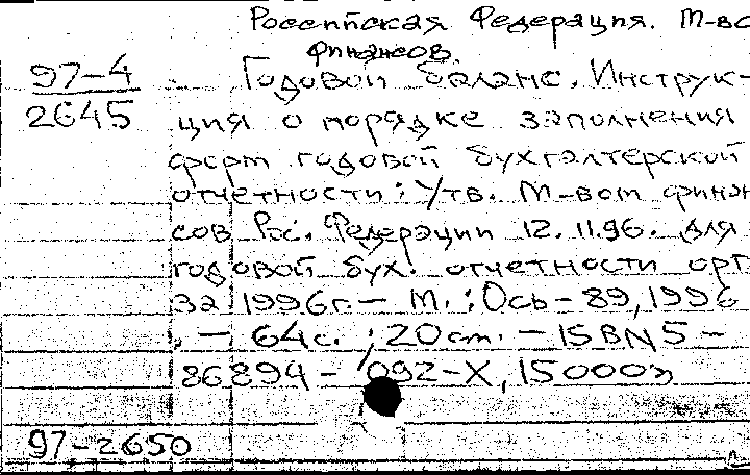 Российская Федерация. М-во
финансов.
97-4
2645
Годовой баланс. Инструк-
ция о порядке заполнения
форм годовой бухгалтерской
отчетности: Утв. М-вом финан
сов Рос. Федерации 12.11.96. для
годовой бух. отчетности орг
за 1996г. - М.: Ось-89, 1996
. - 64с. ; 20 см. - ISBN 5-
86894-092-X, 15000э
97-2650